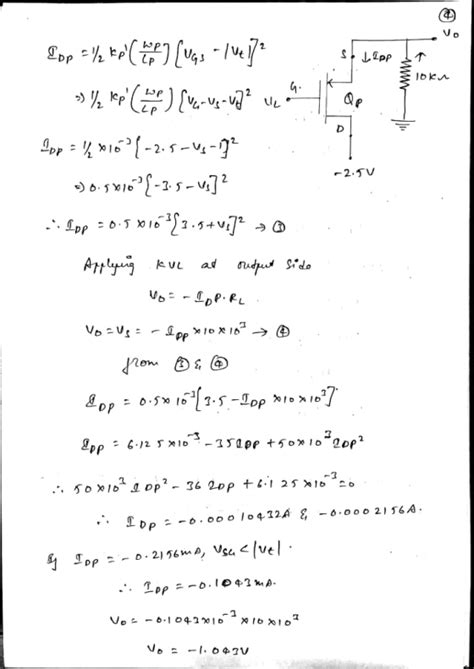 ④
I_DP = 1/2 Kp' (Wp/Lp) [V_GS - |Vt|]^2
⇒ 1/2 Kp' (Wp/Lp) [V_G - V_S - Vt]^2
I_DP = 1/2 × 10^-3 [-2.5 - V_S - 1]^2
⇒ 0.5×10^-3 [-3.5 - V_S]^2
∴ I_DP = 0.5 × 10^-3 [3.5 + V_S]^2 → ③
Vo
S
↓I_DP
↑
10KΩ
G
Q_P
D
-2.5V
Applying KVL at output side
Vo = - I_DP . R_L
Vo = V_S = - I_DP × 10 × 10^3 → ④
from ③ & ④
I_DP = 0.5×10^-3 [3.5 - I_DP × 10 × 10^3]^2
I_DP = 6.125×10^-3 - 35I_DP + 50×10^3 I_DP^2
∴ 50×10^3 I_DP^2 - 36 I_DP + 6.125×10^-3 = 0
∴ I_DP = -0.00010432A & -0.0002156A.
If I_DP = -0.2156mA, V_SG < |Vt|.
∴ I_DP = -0.1043mA.
Vo = -0.1043×10^-3 × 10 × 10^3
Vo = -1.043V